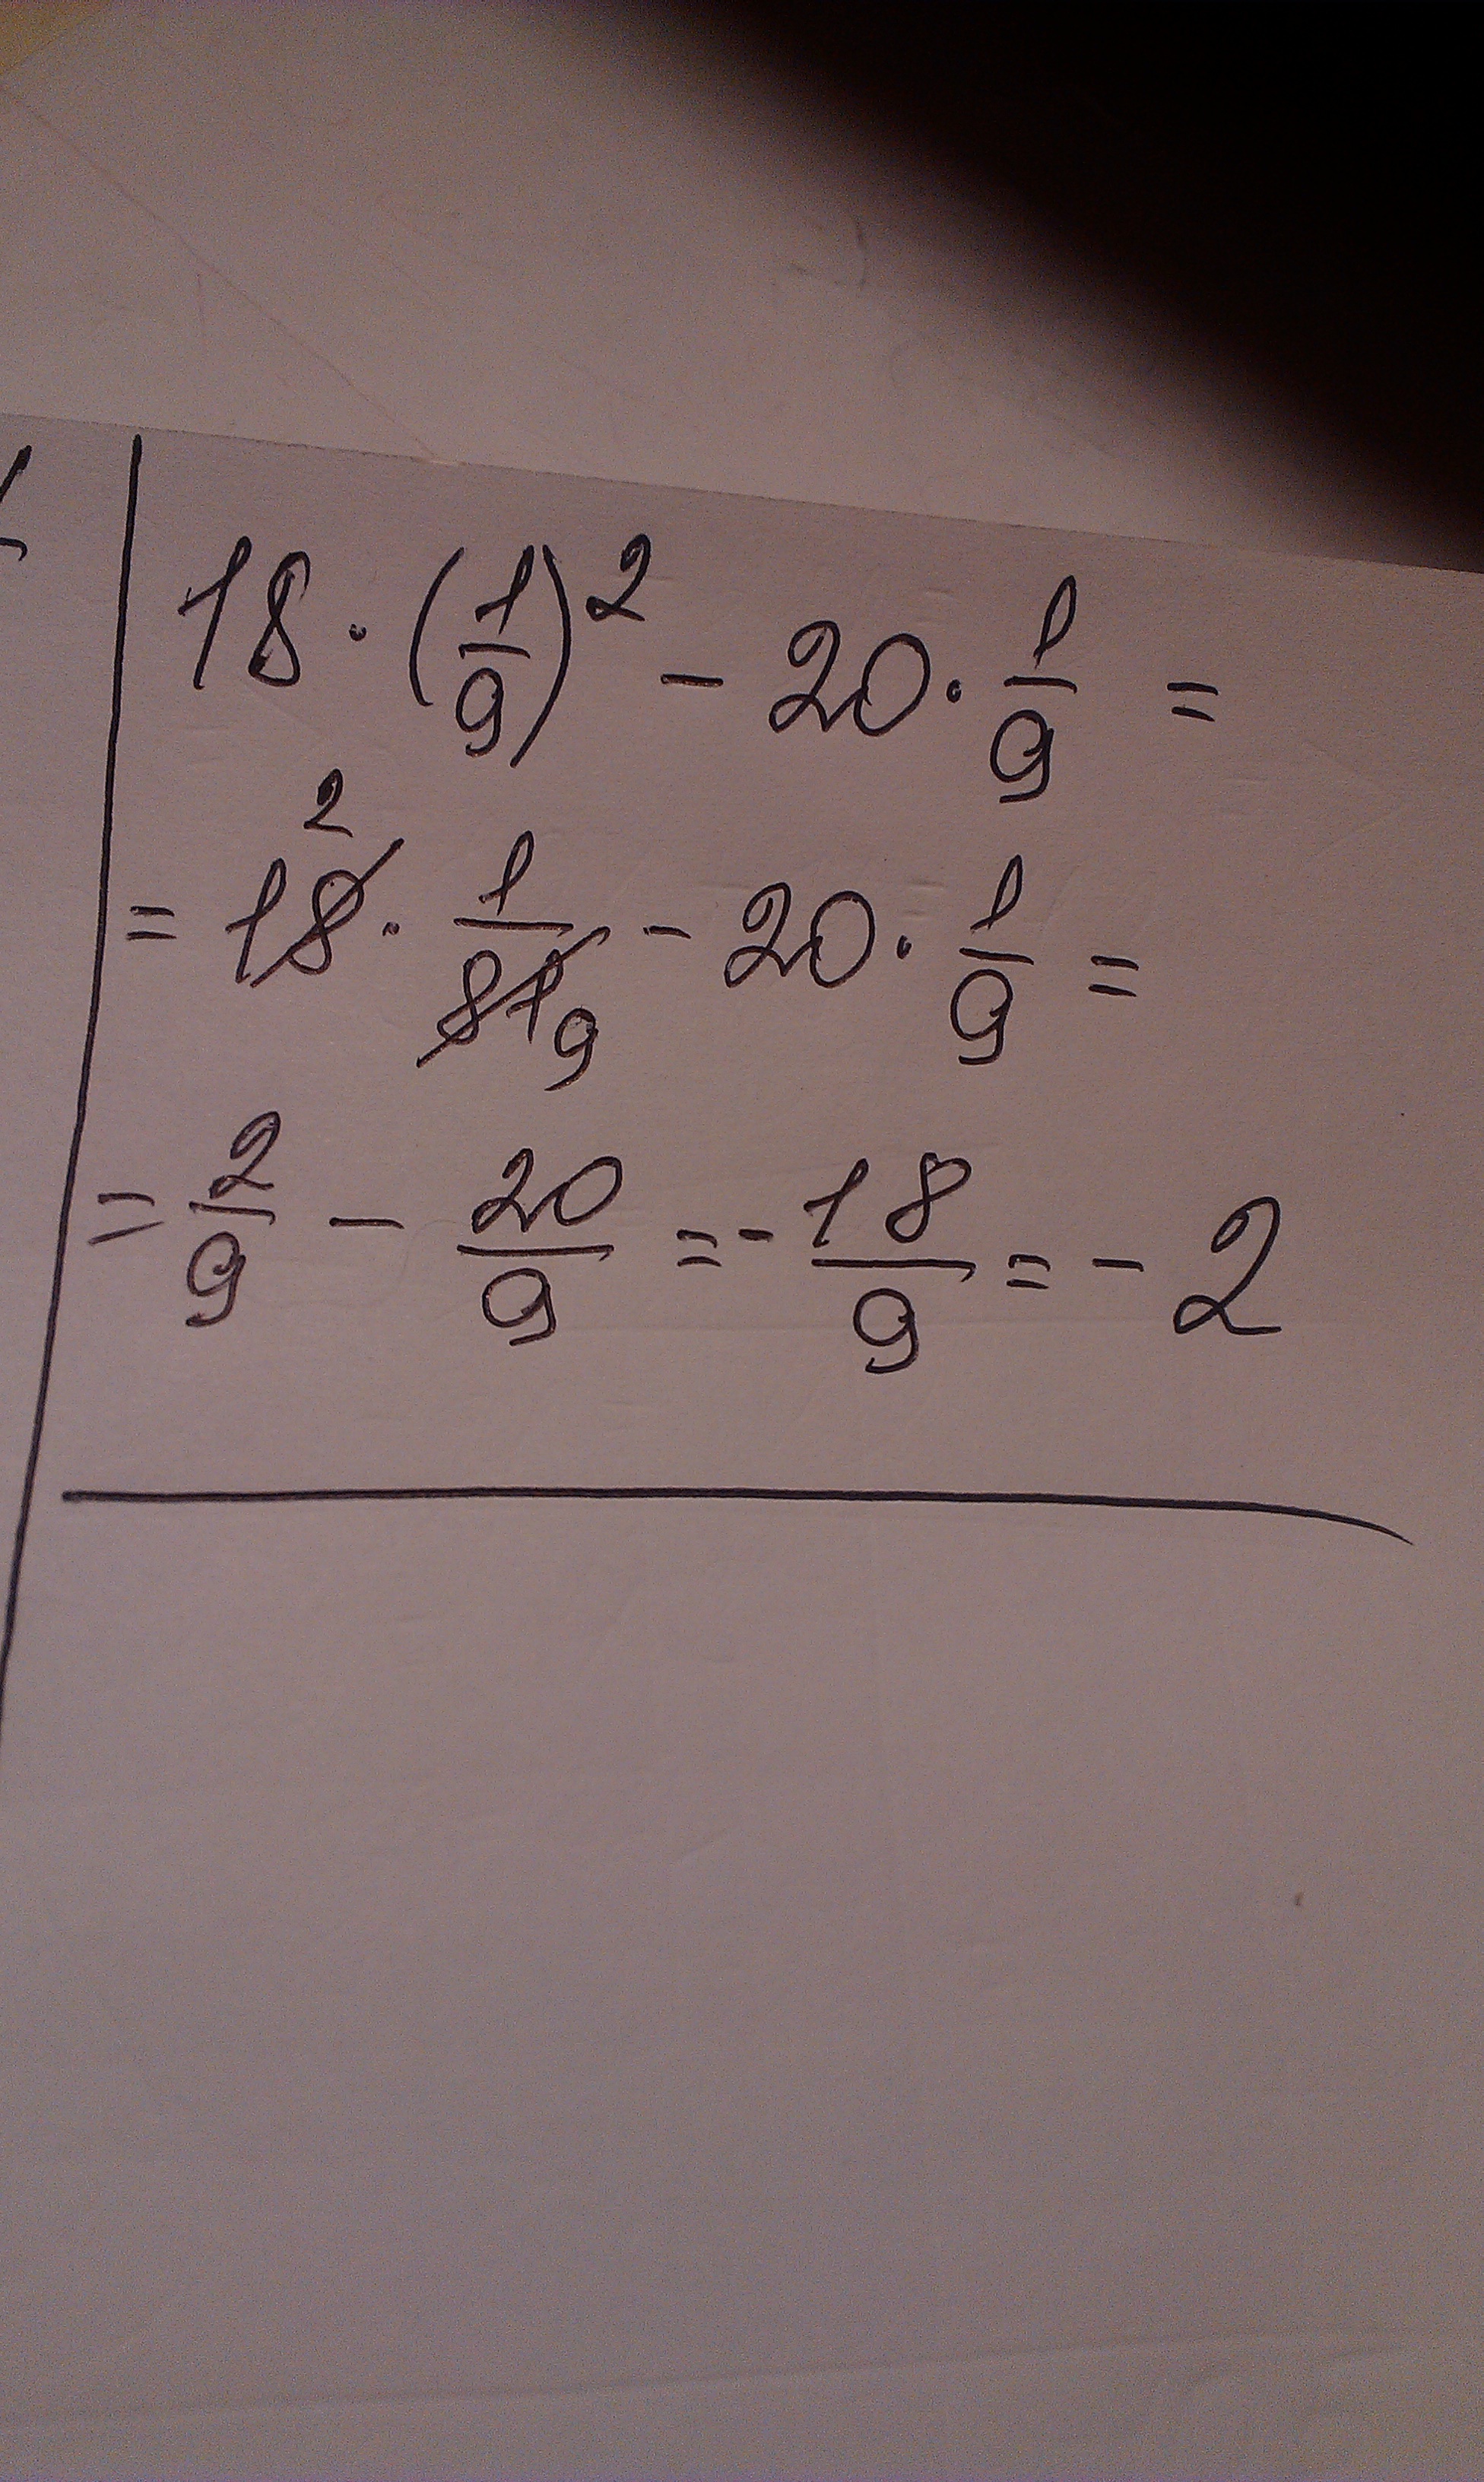 18 · (1/9)² - 20 · 1/9 =
= 18 2 · 1/81 9 - 20 · 1/9 =
= 2/9 - 20/9 = - 18/9 = - 2